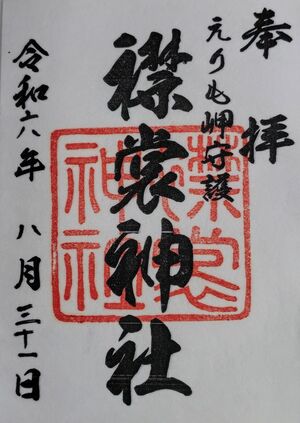 奉拝
えりも岬守護
襟裳神社
令和六年 八月三十一日